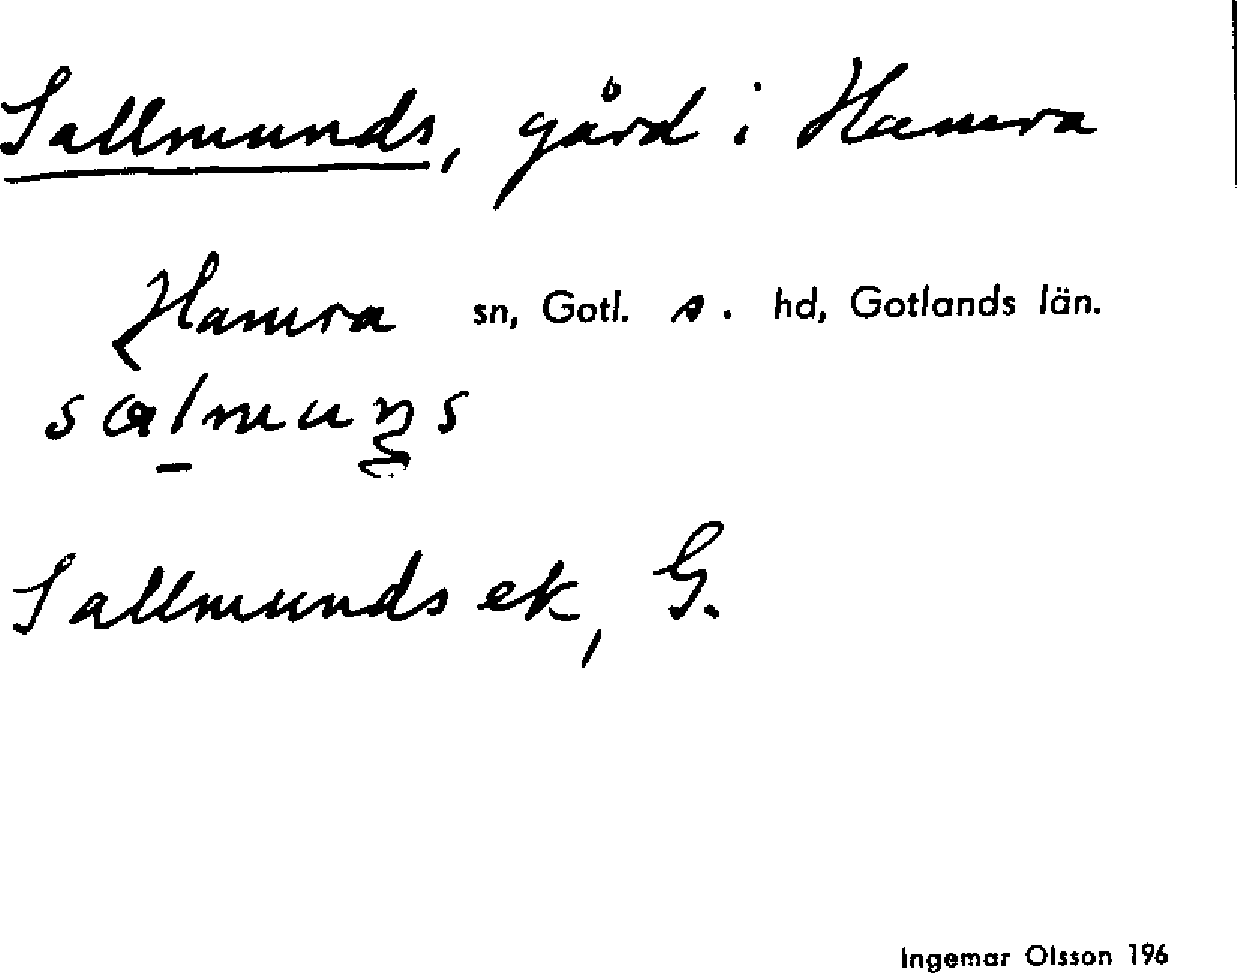 Sallmunds, gård i Hamra
Hamra sn, Gotl. s. hd, Gotlands län.
salmuns
Sallmunds ek, G.
Ingemar Olsson 196